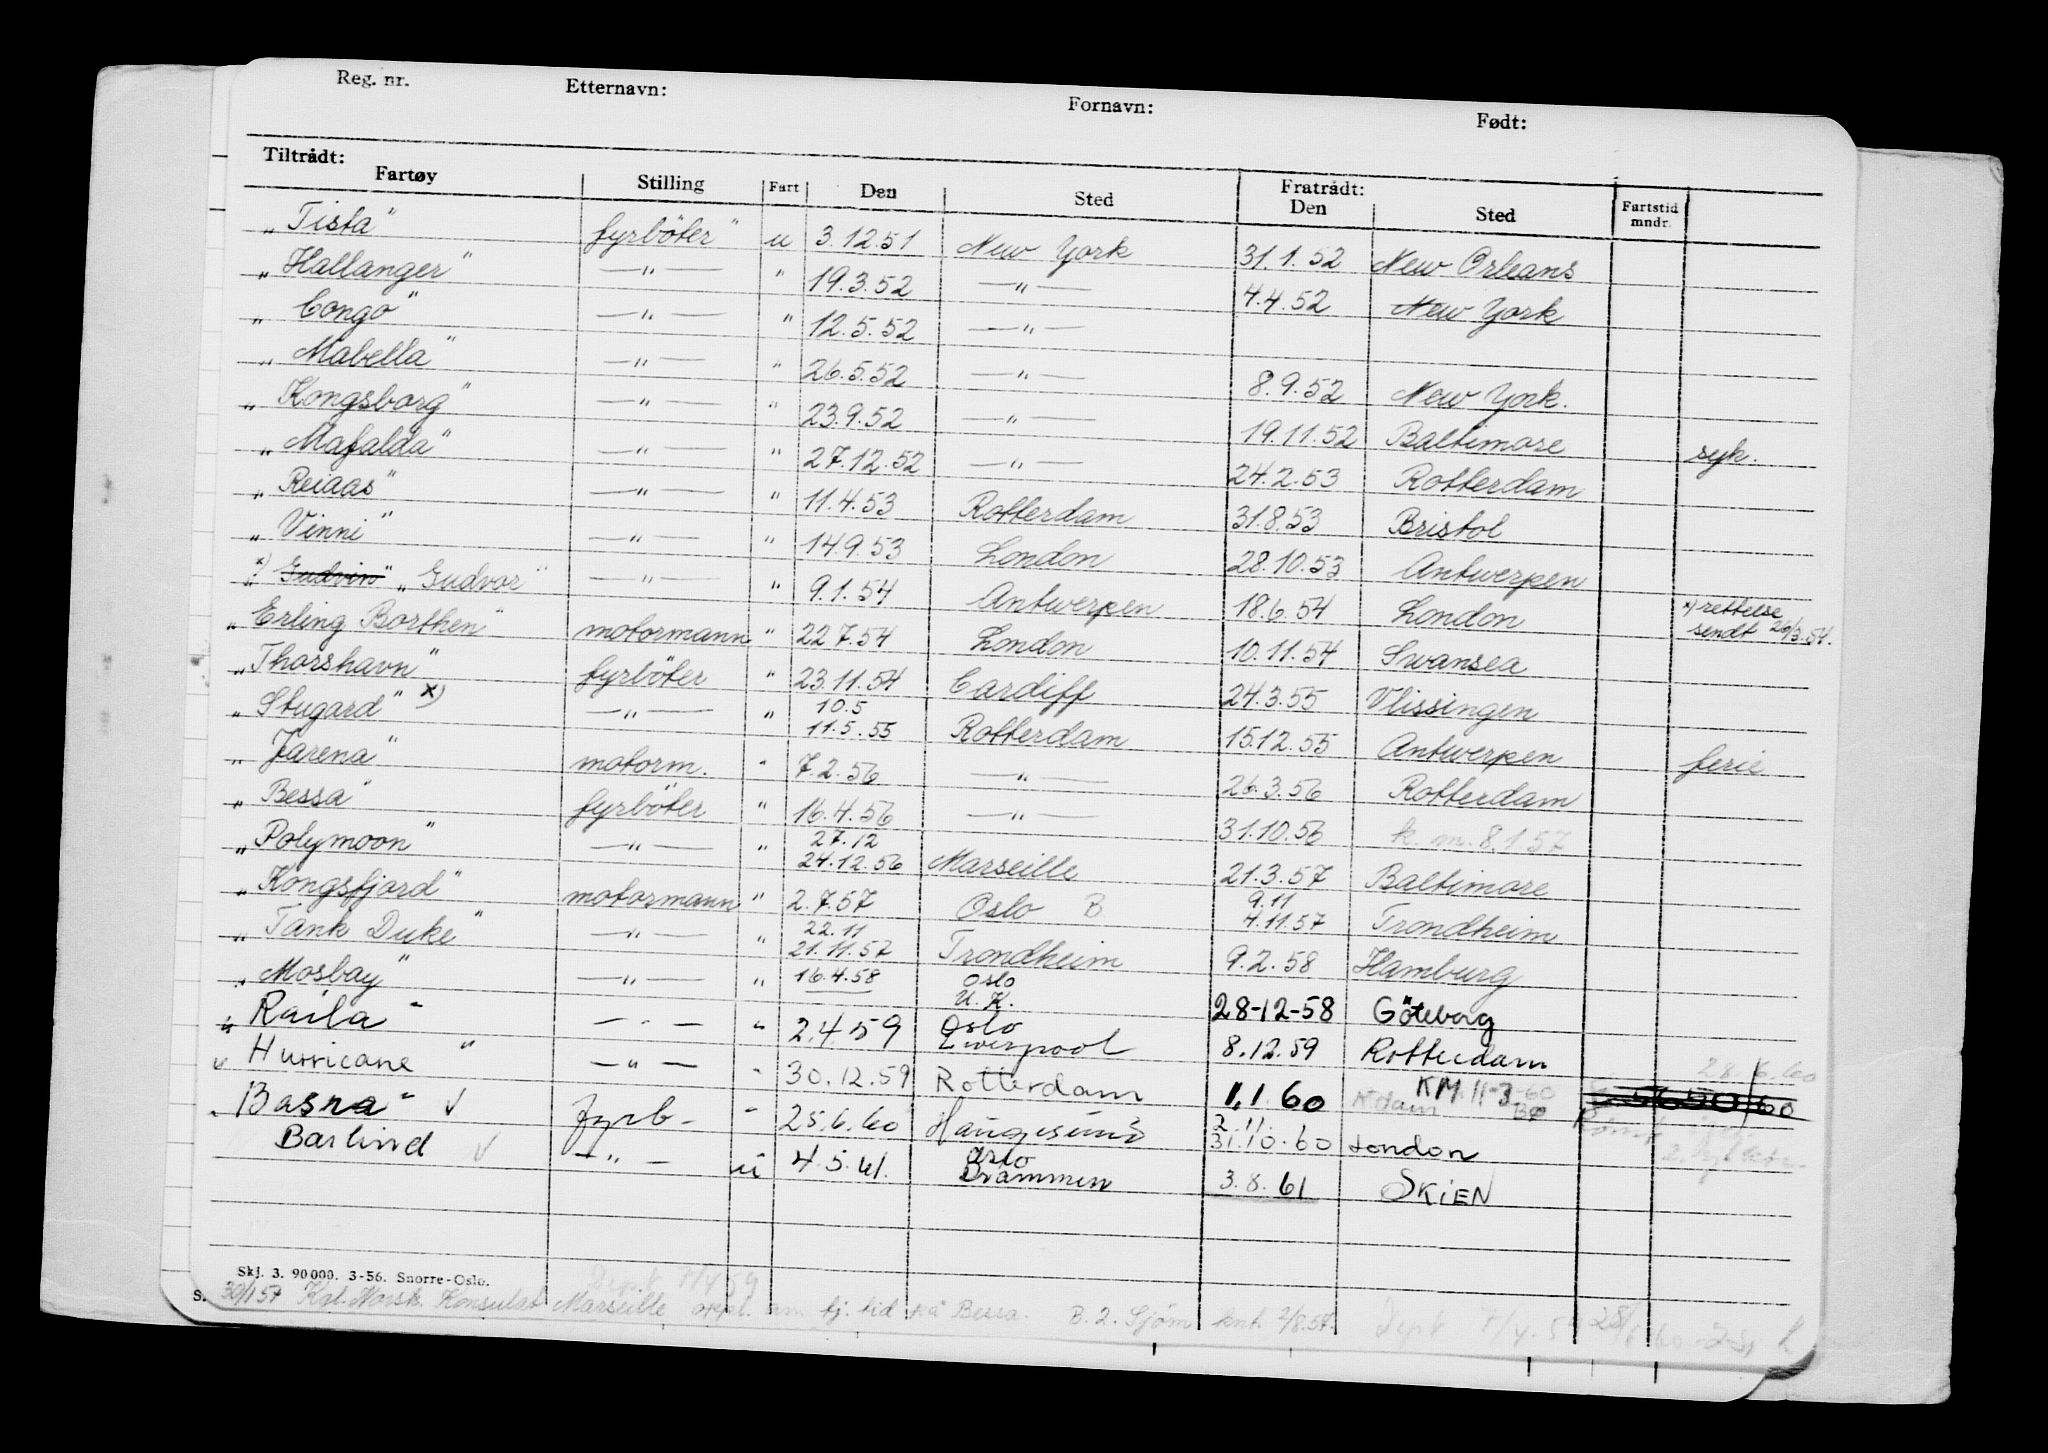 Reg. nr. Etternavn: Fornavn: Født:
Tiltrådt: Fratrådt:
Fartøy Stilling Fart Den Sted Den Sted Fartstid mndr.
„Tista" fyrböter" u 3.12.51 New York 31.1.52 New Orleans
„Hallanger" —„— " 19.3.52 —„— 4.4.52 New York
„Congo" —„— " 12.5.52 —„—
„Mabella" —„— " 26.5.52 —„— 8.9.52 New York.
„Kongsborg" —„— " 23.9.52 —„— 19.11.52 Baltimore syk.
„Mafalda" —„— " 27.12.52 —„— 24.2.53 Rotterdam
„Reiaas" —„— " 11.4.53 Rotterdam 31.8.53 Bristol
„Vinni" —„— " 14.9.53 London 28.10.53 Antwerpen
x) „Gudvin" „Gudvor" —„— " 9.1.54 Antwerpen 18.6.54 London x) rettelse sendt 26/3.54.
„Erling Borthen" motormann " 22.7.54 London 10.11.54 Swansea
„Thorshavn" fyrböter " 23.11.54 Cardiff 24.3.55 Vlissingen
„Stugard" x) —„— " 10.5 11.5.55 Rotterdam 15.12.55 Antwerpen ferie
„Jarena" motorm. " 7.2.56 —„— 26.3.56 Rotterdam
„Bessa" fyrböter " 16.4.56 —„— 31.10.56 k. m. 8.1 57
„Polymoon" —„— " 27.12 24.12.56 Marseille 21.3.57 Baltimore
„Kongsfjord" motormann " 2.7.57 Oslo B 9.11 4.11.57 Trondheim
„Tank Duke" —„— " 22.11 21.11.57 Trondheim 9.2.58 Hamburg
„Mosbay" —„— " 16.4.58 Oslo U.K. 28-12-58 Göteborg
„Raila" — " — " 2.4.59 Oslo Liverpool 8.12.59 Rotterdam
„Hurricane" — " — " 30.12.59 Rotterdam 1.1.60 R'dam KM 11-3-60 28/6.60
„Basra" √ fyrb - " 25.6.60 Haugesund 2.11. 31.10.60 London
Barlind √ —„— u 4.5.61. Oslo Drammen 3.8.61 SKIEN
Skj. 3. 90 000. 3-56. Snorre-Oslo. Dept 7/4 59
S. 30/1 57 Kgl. Norsk. Konsulat Marseille oppl. om tj. tid på Bessa. B. 2. Sjøm knt 2/8.57. Dept 7/4.59 28/6 60